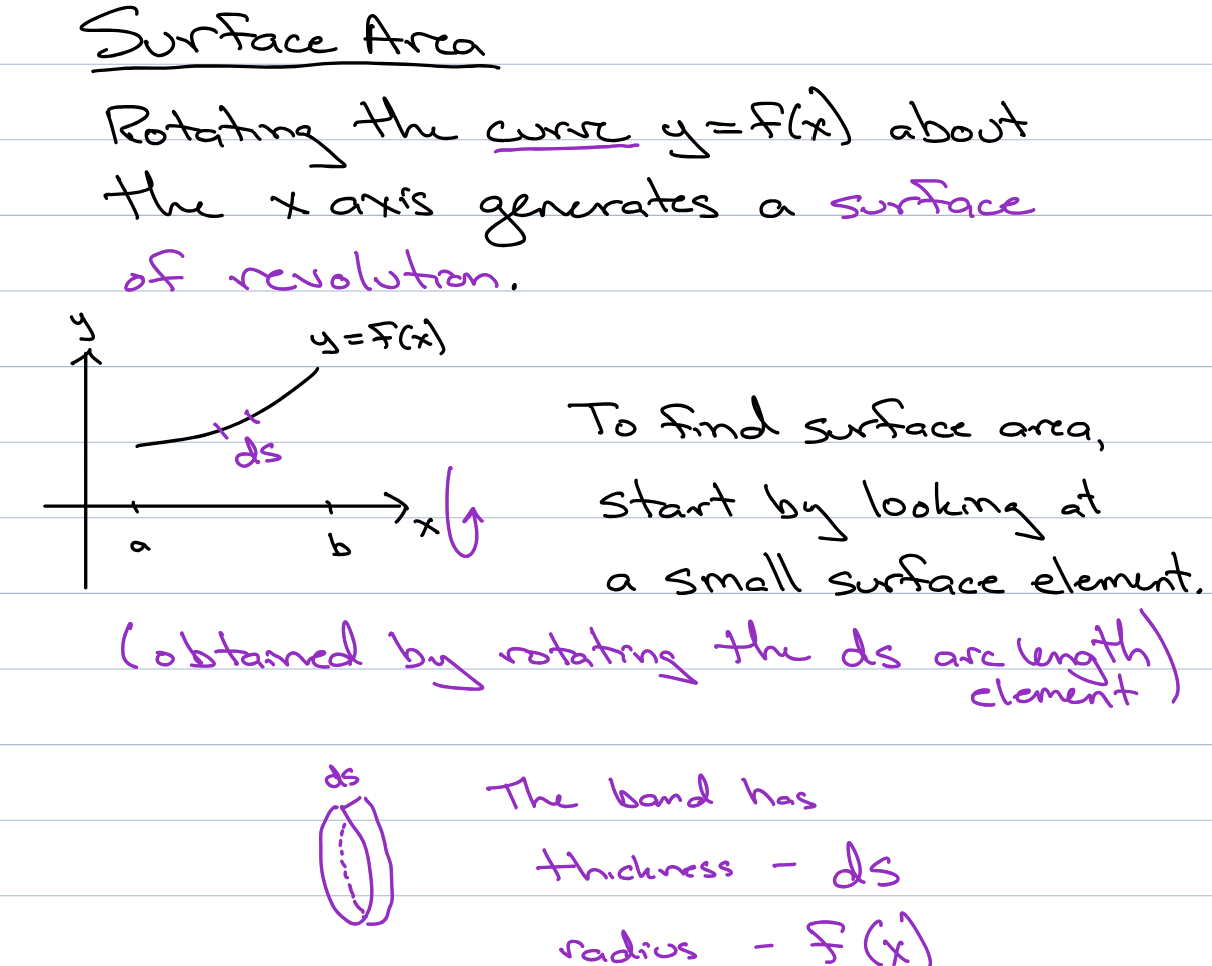 Surface Area
Rotating the curve y=f(x) about
the x axis generates a surface
of revolution.
y
y=f(x)
ds
x
a
b
To find surface area,
start by looking at
a small surface element.
(obtained by rotating the ds arc length
element)
ds
The band has
thickness - ds
radius - f(x)